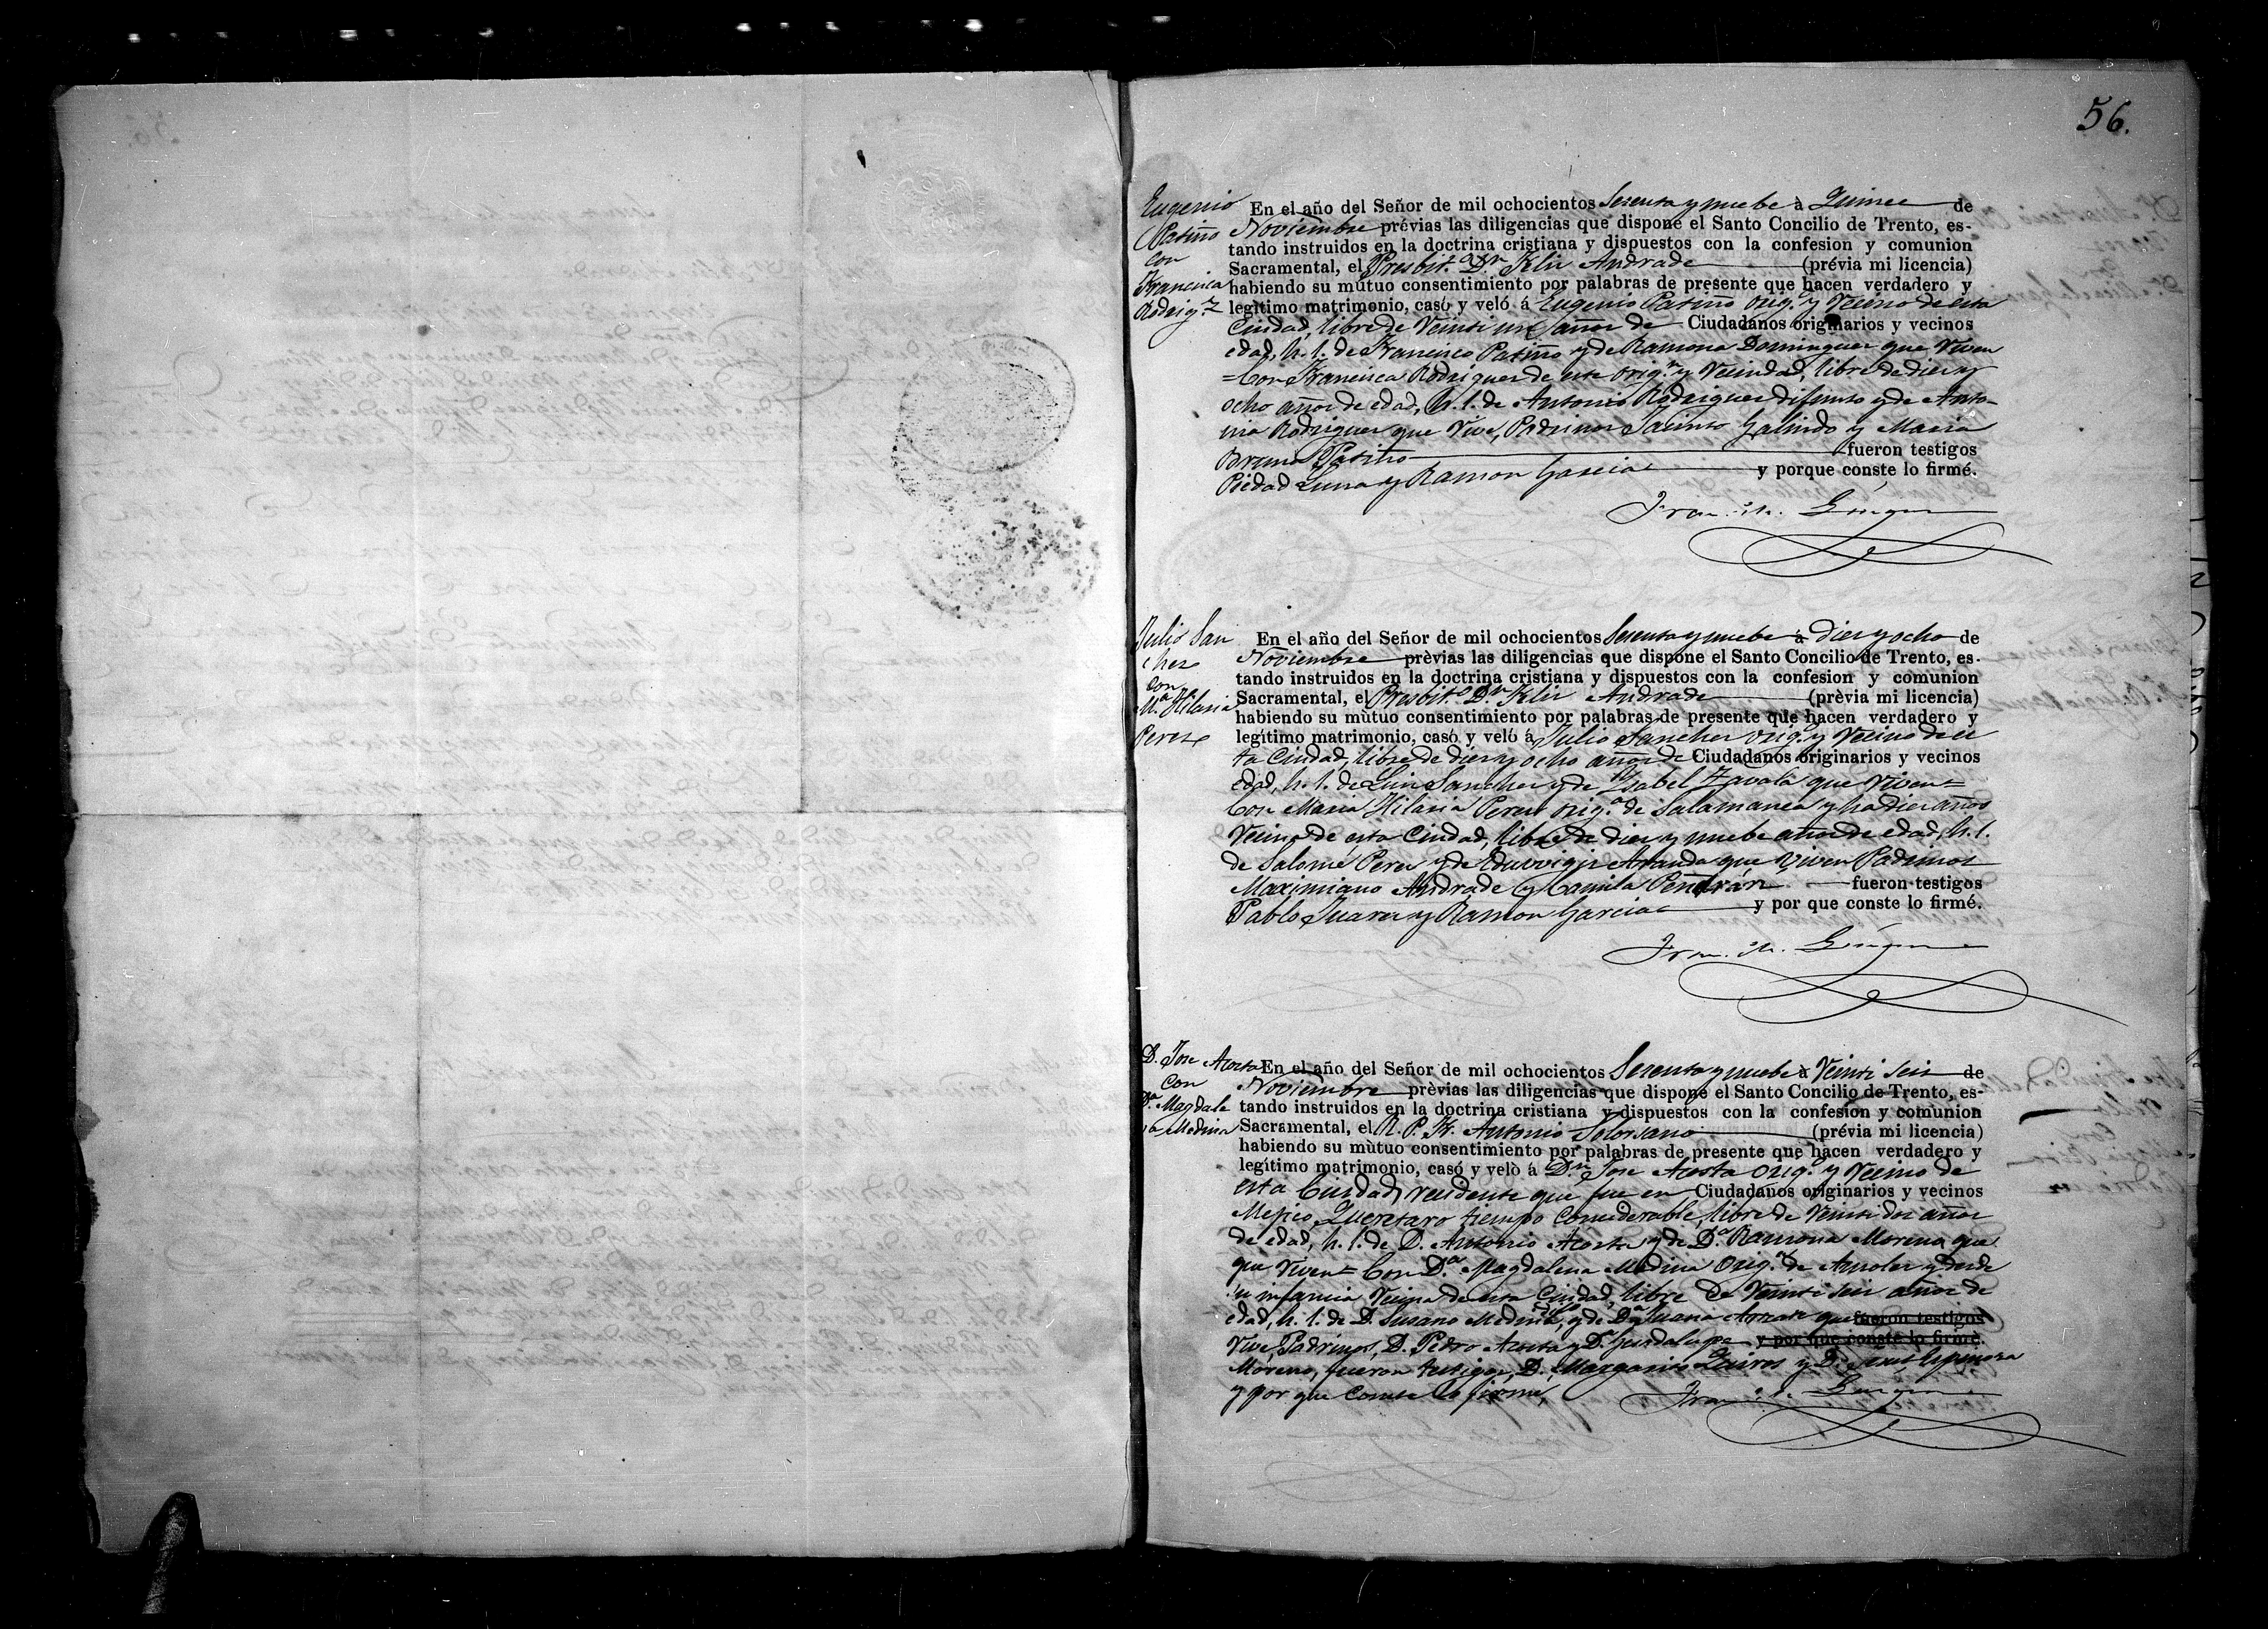 56.
Eugenio
Patiño
con
Francisca
Rodrig.z
En el año del Señor de mil ochocientos Sesenta y nuebe à Quince de
Noviembre prévias las diligencias que dispone el Santo Concilio de Trento, es-
tando instruidos en la doctrina cristiana y dispuestos con la confesion y comunion
Sacramental, el Presbit.o D.n Felix Andrade (prévia mi licencia)
habiendo su mútuo consentimiento por palabras de presente que hacen verdadero y
legítimo matrimonio, casó y veló á Eugenio Patiño orig.o y Vecino de esta
Ciudad, libre de Veinti un años de Ciudadanos originarios y vecinos
edad, h. l. de Francisco Patiño y de Ramona Dominguez que Viven
=Con Francisca Rodriguez de este orig.n y Vecindad, libre de diez y
ocho años de edad, h. l. de Antonio Rodriguez difunto y de Anto-
nia Rodriguez que Vive, Padrinos Jacinto Galindo y Maria
Bruna Patiño fueron testigos
Piedad Luna y Ramon Garcia y porque conste lo firmé.
Fran.co M. Góngora
Julio San
chez
con
M.a Hilaria
Perez
En el año del Señor de mil ochocientos Sesenta y nuebe à diez y ocho de
Noviembre prèvias las diligencias que dispone el Santo Concilio de Trento, es-
tando instruidos en la doctrina cristiana y dispuestos con la confesion y comunion
Sacramental, el Presbit.o D.n Felix Andrade (prèvia mi licencia)
habiendo su mùtuo consentimiento por palabras de presente que hacen verdadero y
legítimo matrimonio, casó y veló á Julio Sanchez orig.o y Vecino de es
ta Ciudad, libre de diez y ocho años de Ciudadanos originarios y vecinos
edad, h. l. de Luis Sanchez y de Ysabel Zavala que Viven=
Con Maria Hilaria Perez orig.a de Salamanca y ha diez años
Vecina de esta Ciudad, libre de diez y nuebe años de edad, h. l.
de Salome Perez y de Eduvigis Aranda que Viven Padrinos
Maximiano Andrade y Camila fueron testigos
Pablo Juarez y Ramon Garcia y por que conste lo firmé.
Fran.co M. Góngora
D. Jose Acosta
con
D.a Magdale
na Medina
En el año del Señor de mil ochocientos Sesenta y nuebe à Veinti seis de
Noviembre prèvias las diligencias que dispone el Santo Concilio de Trento, es-
tando instruidos en la doctrina cristiana y dispuestos con la confesion y comunion
Sacramental, el R. P. Fr. Antonio Solorsano (prévia mi licencia)
habiendo su mùtuo consentimiento por palabras de presente que hacen verdadero y
legítimo matrimonio, casó y velò á D.n Jose Acosta orig.o y Vecino de
esta Ciudad, residente que fue en Ciudadanos originarios y vecinos
Mejico, Queretaro tiempo considerable, libre de Veinti dos años
de edad, h. l. de D. Antonio Acosta y de D.a Ramona Moreno que
que Viven= Con D.a Magdalena Medina orig.a de Amoles y desde
su infancia Vecina de esta Ciudad, libre de Veinti seis años de
edad, h. l. de D. Susano Medina, dif.o y de D.a Juana que fueron testigos
Vive, Padrinos, D. Pedro Acosta y D.a Guadalupe y por que conste lo firmé.
Moreno, fueron testigos, D. Margarito Quiros y D. Jesus Espinosa
y por que conste lo firmé,
Fran.co M. Góngora